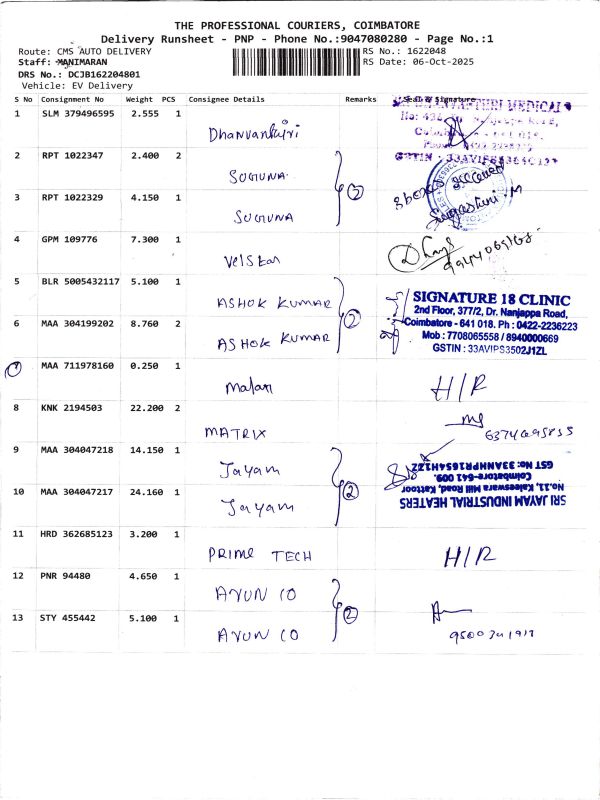 THE PROFESSIONAL COURIERS, COIMBATORE
Delivery Runsheet - PNP - Phone No.:9047080280 - Page No.:1
Route: CMS AUTO DELIVERY RS No.: 1622048
Staff: MANIMARAN RS Date: 06-Oct-2025
DRS No.: DCJB162204801
Vehicle: EV Delivery
S No Consignment No Weight PCS Consignee Details Remarks Seal & Signature
1 SLM 379496595 2.555 1
Dhanvantri
2 RPT 1022347 2.400 2
SUGUNA
3 RPT 1022329 4.150 1
SUGUNA
2
4 GPM 109776 7.300 1
Velstar
5 BLR 5005432117 5.100 1
ASHOK KUMAR
6 MAA 304199202 8.760 2
ASHOK KUMAR
2
SIGNATURE 18 CLINIC
2nd Floor, 377/2, Dr. Nanjappa Road,
Coimbatore - 641 018. Ph : 0422-2236223
Mob : 7708065558 / 8940000669
GSTIN : 33AVIPS3502J1ZL
7 MAA 711978160 0.250 1
Malar H/R
8 KNK 2194503 22.200 2
MATRIX
9 MAA 304047218 14.150 1
Jayam
10 MAA 304047217 24.160 1
Jayam
2
SRI JAYAM INDUSTRIAL HEATERS
No.11, Kaleeswara Mill Road, Kattoor
Coimbatore-641 009.
GST No: 33ANHPR1654H1ZZ
11 HRD 362685123 3.200 1
PRIME TECH H/R
12 PNR 94480 4.650 1
ARUN CO
13 STY 455442 5.100 1
ARUN CO
2